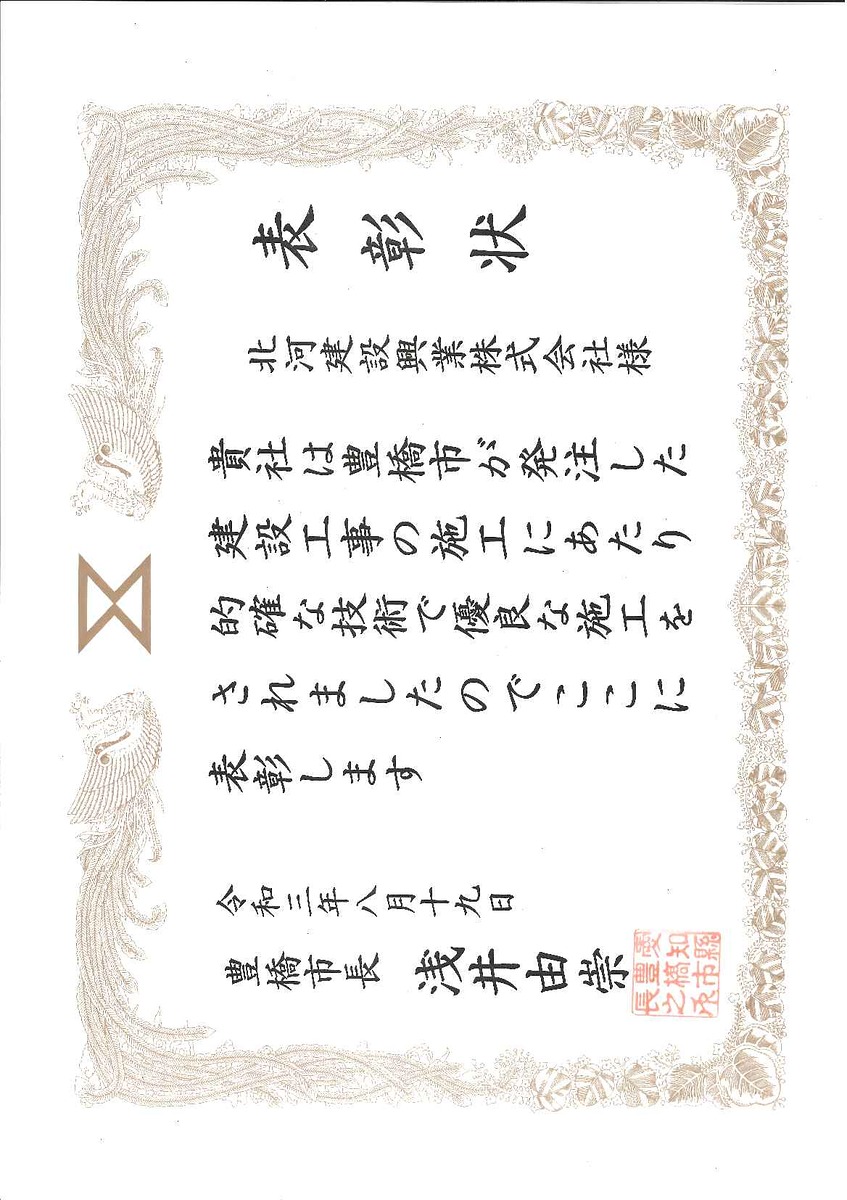 表彰状
北河建設興業株式会社様
貴社は豊橋市が発注した
建設工事の施工にあたり
的確な技術で優良な施工を
されましたのでここに
表彰します
令和三年八月十九日
豊橋市長 浅井由崇
愛知縣
豊橋市
長之印